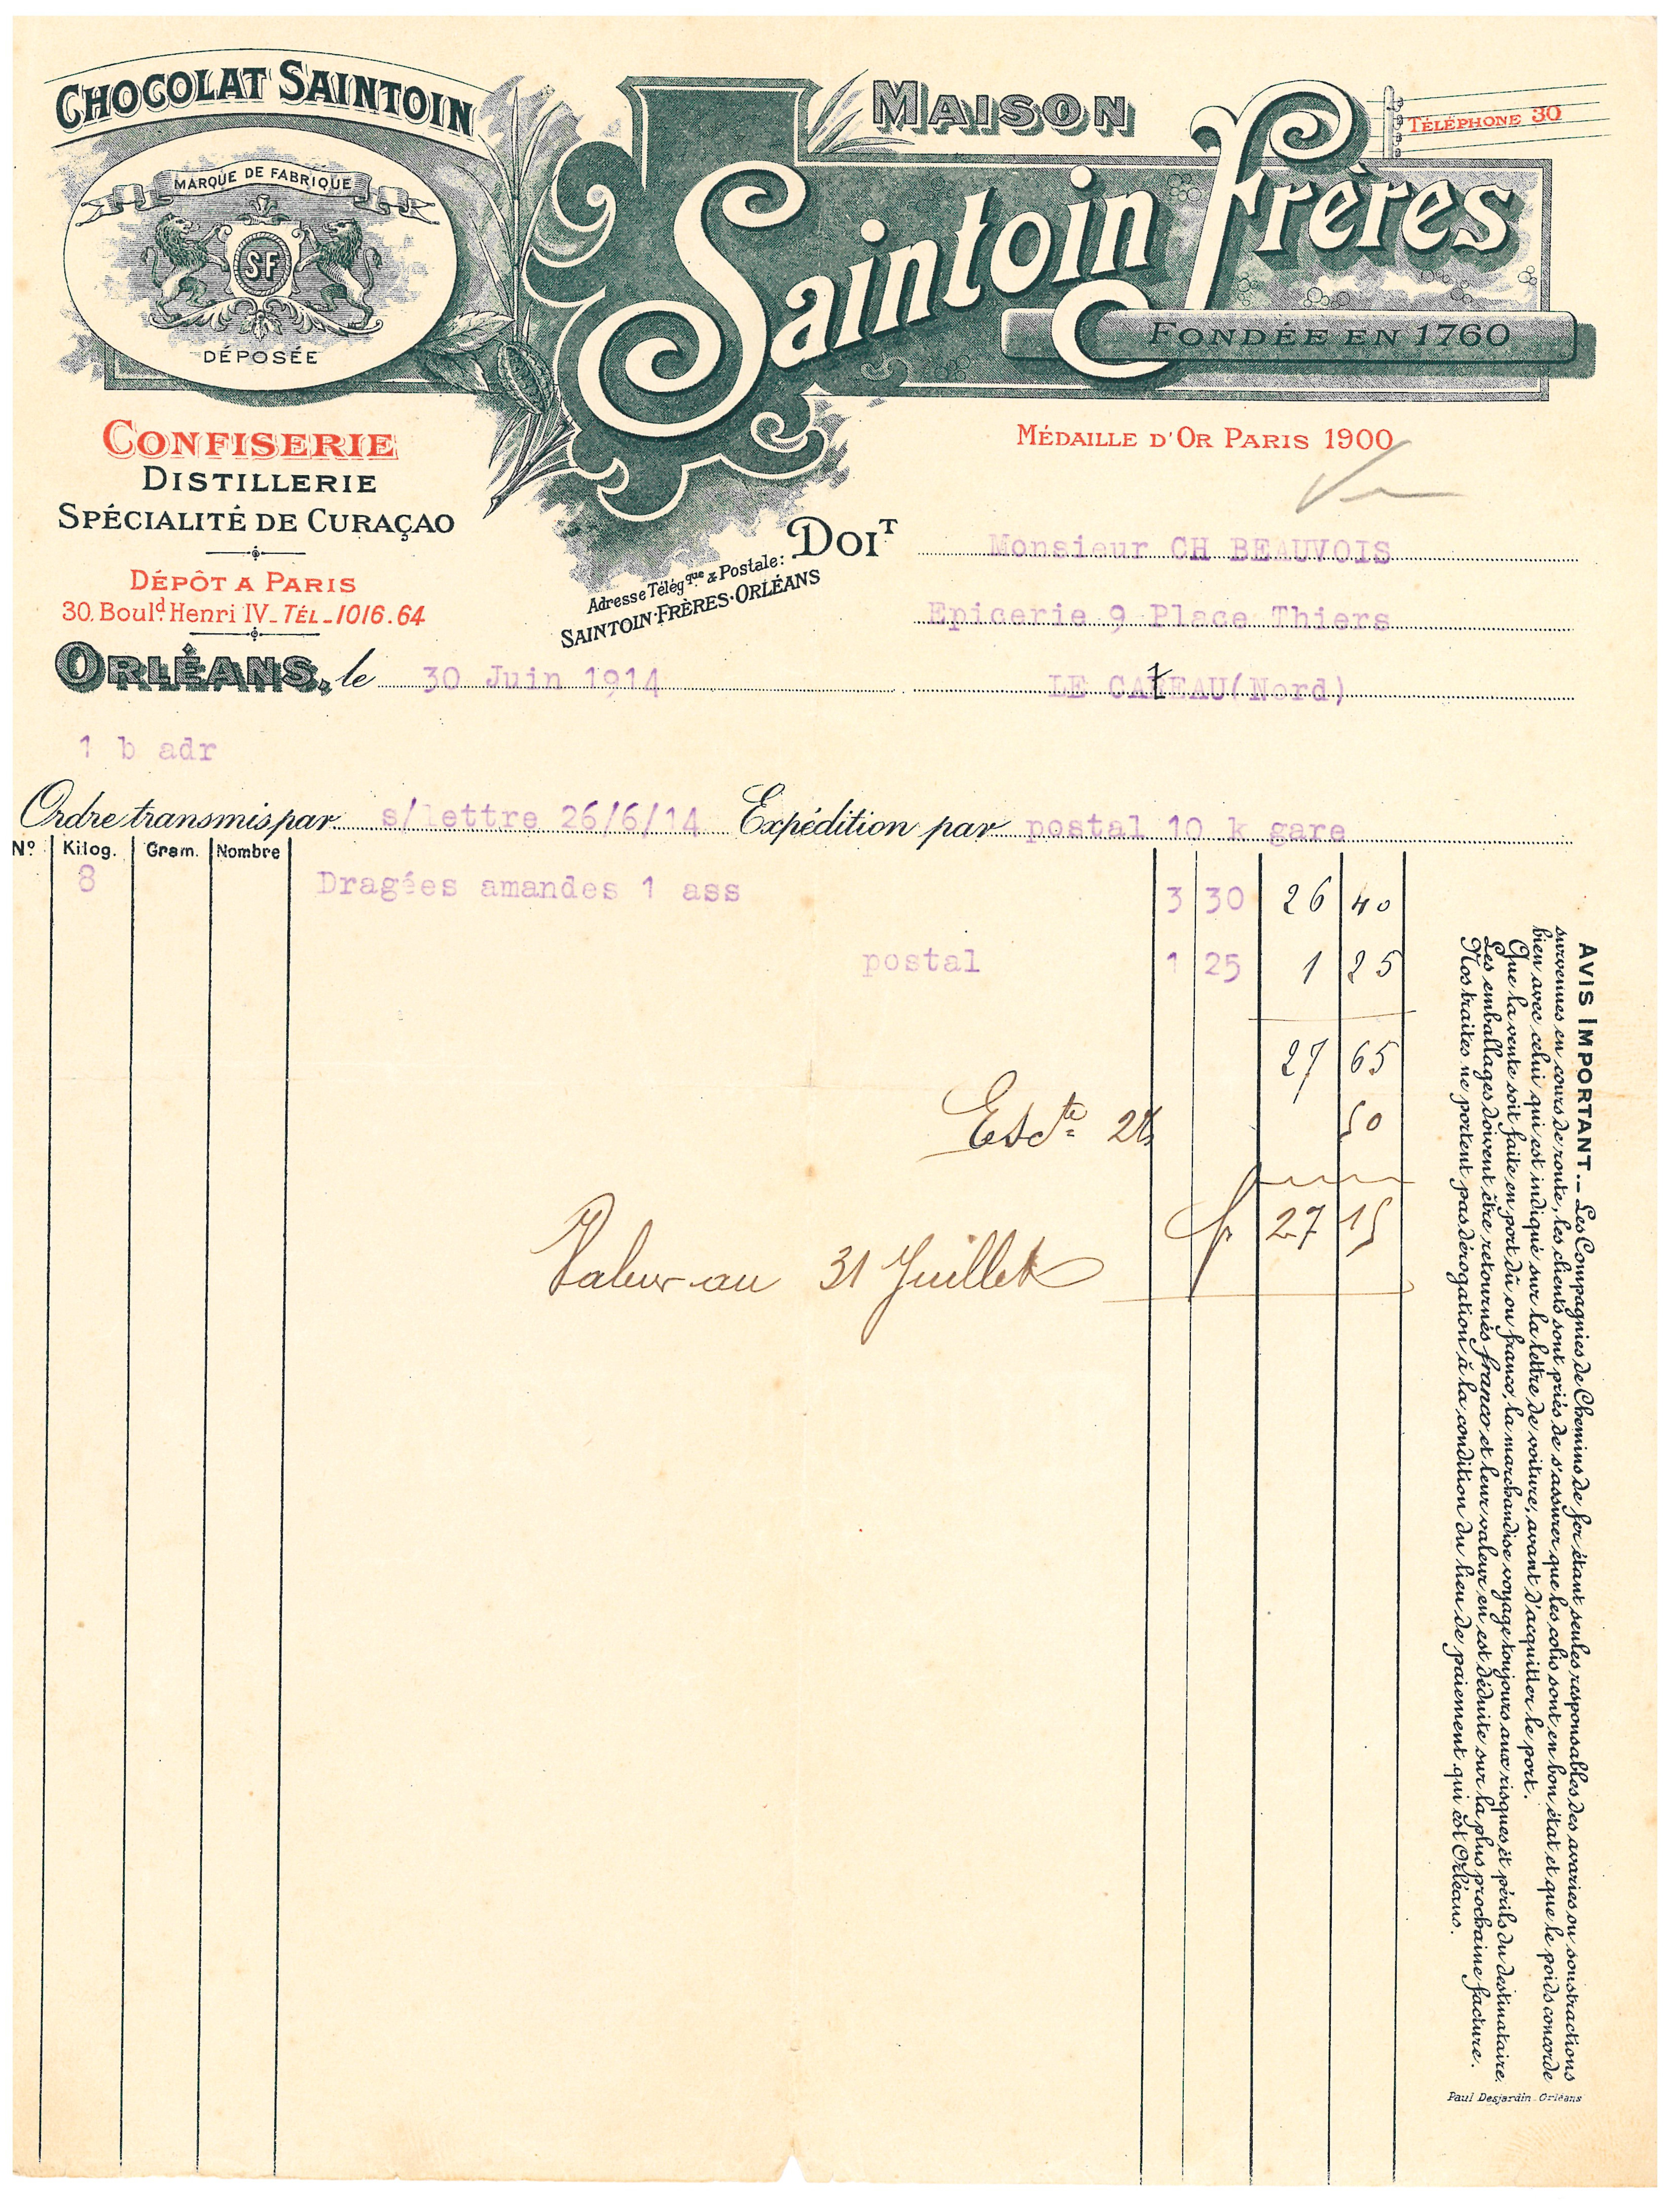 CHOCOLAT SAINTOIN
MARQUE DE FABRIQUE
SF
DÉPOSÉE
MAISON
Saintoin Frères
TÉLÉPHONE 30
FONDÉE EN 1760
MÉDAILLE D'OR PARIS 1900
CONFISERIE
DISTILLERIE
SPÉCIALITÉ DE CURAÇAO
DÉPÔT A PARIS
30, Boulᵈ Henri IV_ TÉL_1016.64
Adresse Télégque & Postale:
SAINTOIN·FRÈRES·ORLÉANS
DOIT Monsieur CH BEAUVOIS
Epicerie 9 Place Thiers
LE CATEAU(Nord)
ORLÉANS, le 30 Juin 1914
1 b adr
Ordre transmis par s/lettre 26/6/14 Expédition par postal 10 k gare
Nº Kilog. Gram. Nombre
8 Dragées amandes 1 ass 3 30 26 40
postal 1 25 1 25
27 65
Escte 2% 50
Valeur au 31 Juillet fr 27 15
AVIS IMPORTANT._ Les Compagnies de Chemins de fer étant seules responsables des avaries ou soustractions
survenues en cours de route, les clients sont priés de s'assurer que les colis sont en bon état et que le poids concorde
bien avec celui qui est indiqué sur la lettre de voiture, avant d'acquitter le port.
Que la vente soit faite en port dû ou franco, la marchandise voyage toujours aux risques et périls du destinataire.
Les emballages doivent être retournés franco et leur valeur en est déduite sur la plus prochaine facture.
Nos traites ne portent pas dérogation à la condition du lieu de paiement qui est Orléans.
Paul Desjardin_Orléans